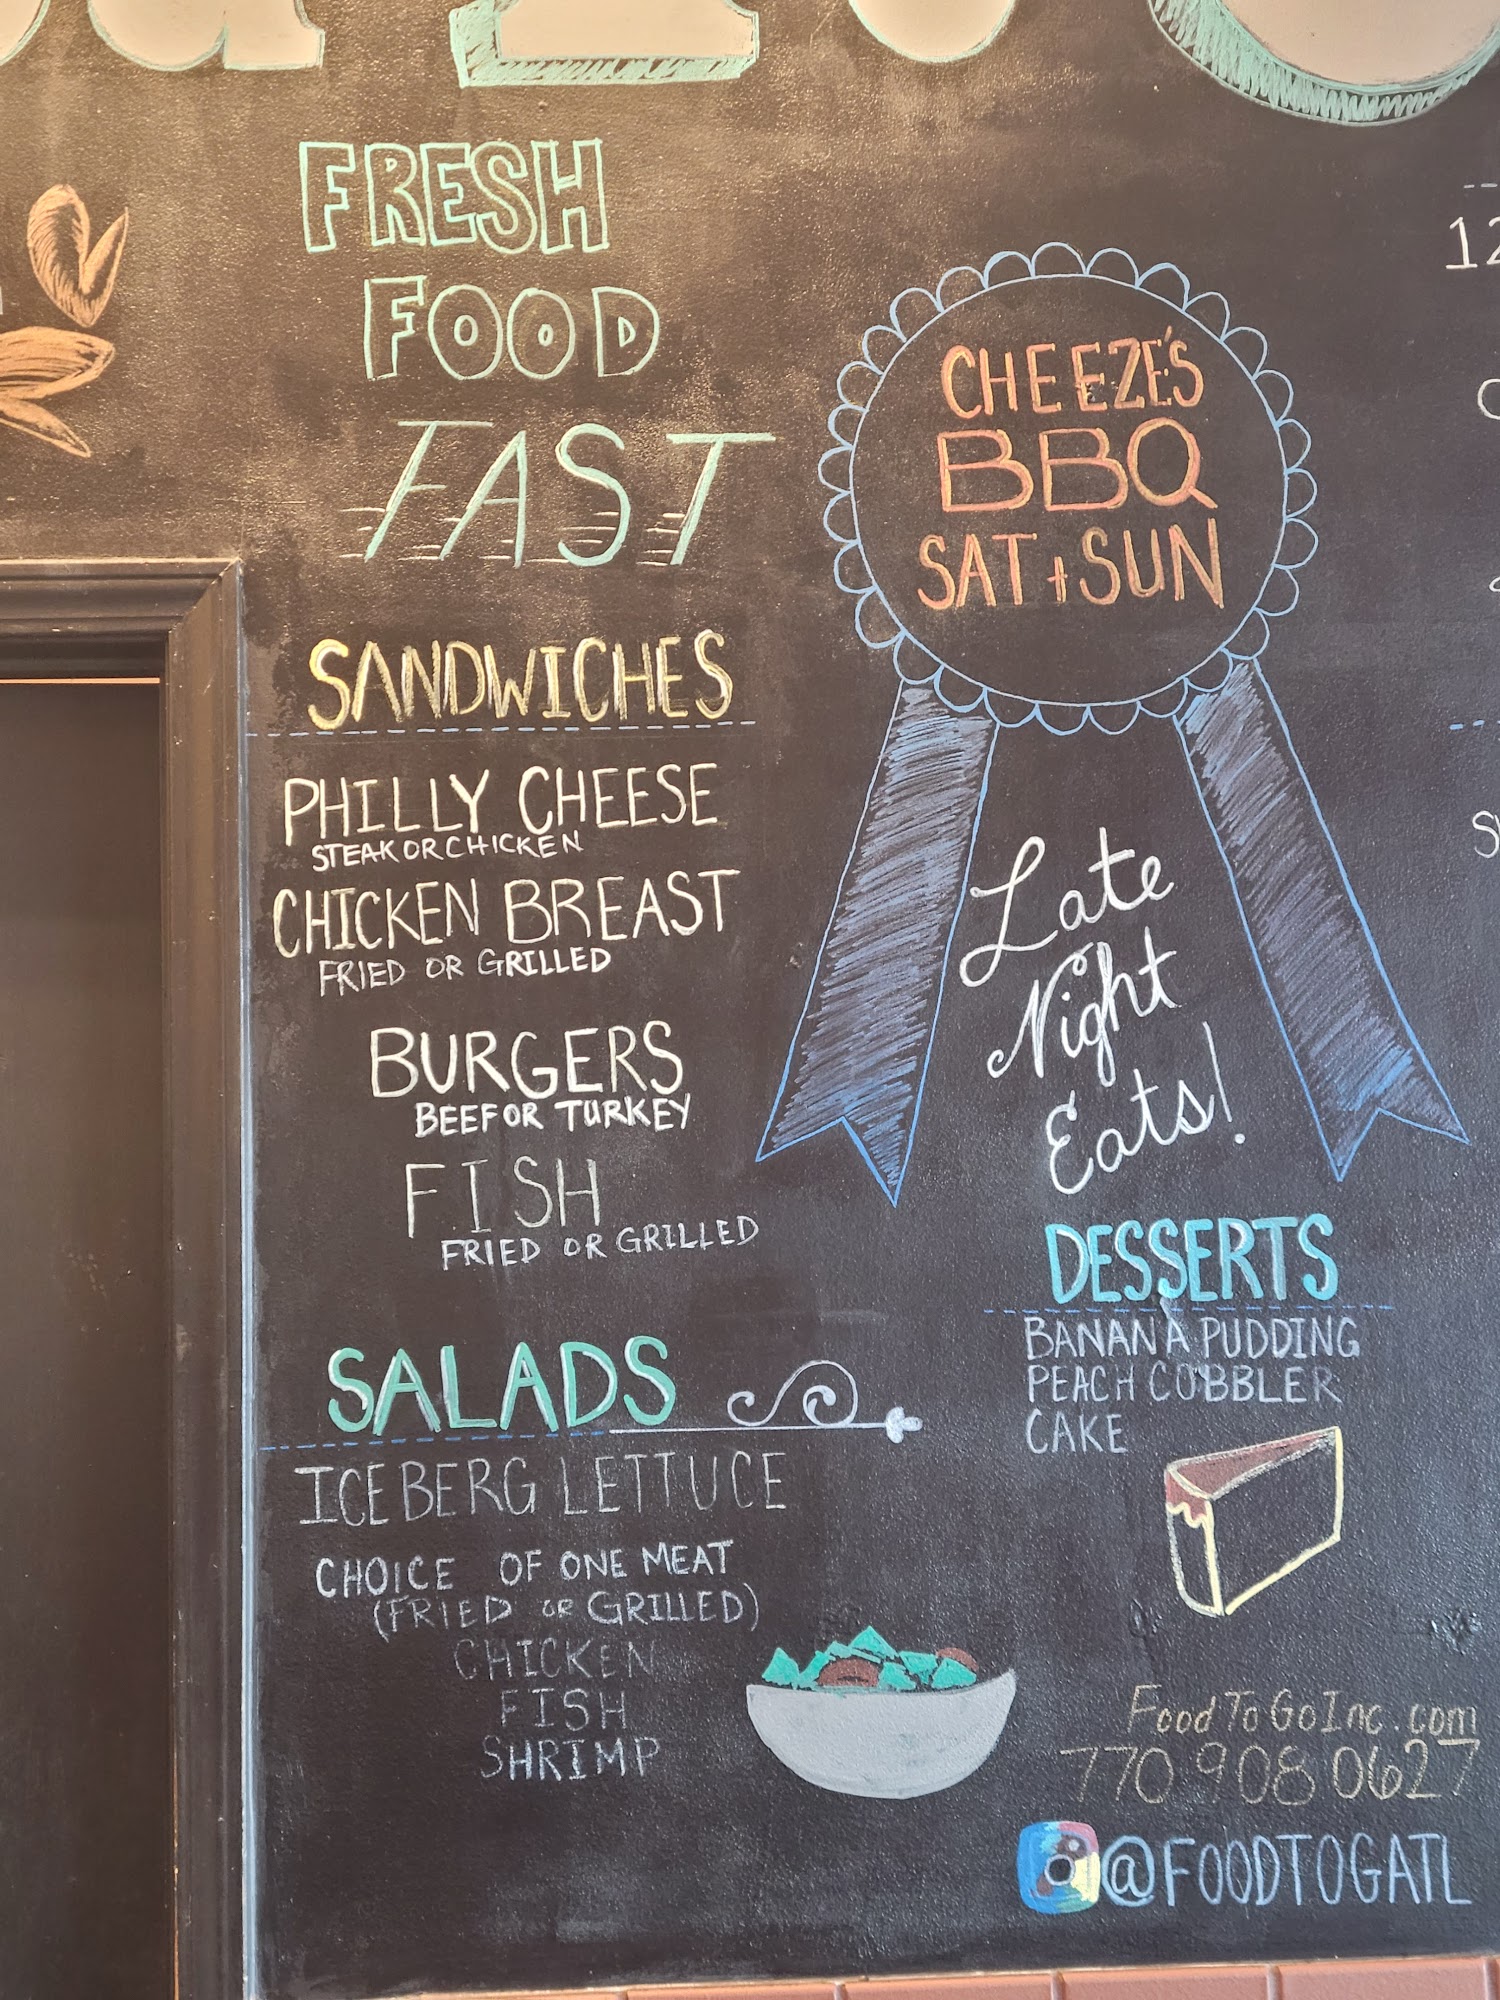 FRESH
FOOD
FAST
CHEEZE'S
BBQ
SAT + SUN
SANDWICHES
PHILLY CHEESE
STEAK OR CHICKEN
CHICKEN BREAST
FRIED OR GRILLED
BURGERS
BEEF OR TURKEY
FISH
FRIED OR GRILLED
Late
Night
Eats!
SALADS
ICEBERG LETTUCE
CHOICE OF ONE MEAT
(FRIED OR GRILLED)
CHICKEN
FISH
SHRIMP
DESSERTS
BANANA PUDDING
PEACH COBBLER
CAKE
FoodToGoInc.com
770 908 0627
@FOODTOGATL